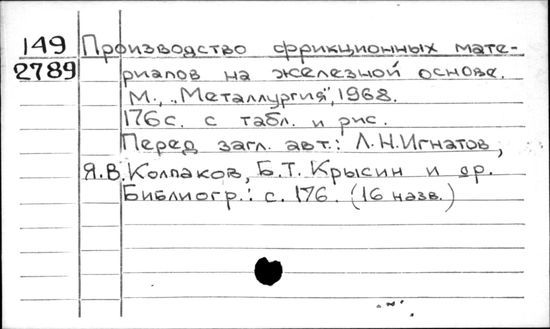 149 Производство фрикционных мате-
2789 риалов на железной основе.
М., „Металлургия", 1968.
176 с. с табл. и рис.
Перед загл. авт.: Л.Н.Игнатов,
Я.В.Колпаков, Б.Т.Крысин и др.
Библиогр.: с. 176. (16 назв.)